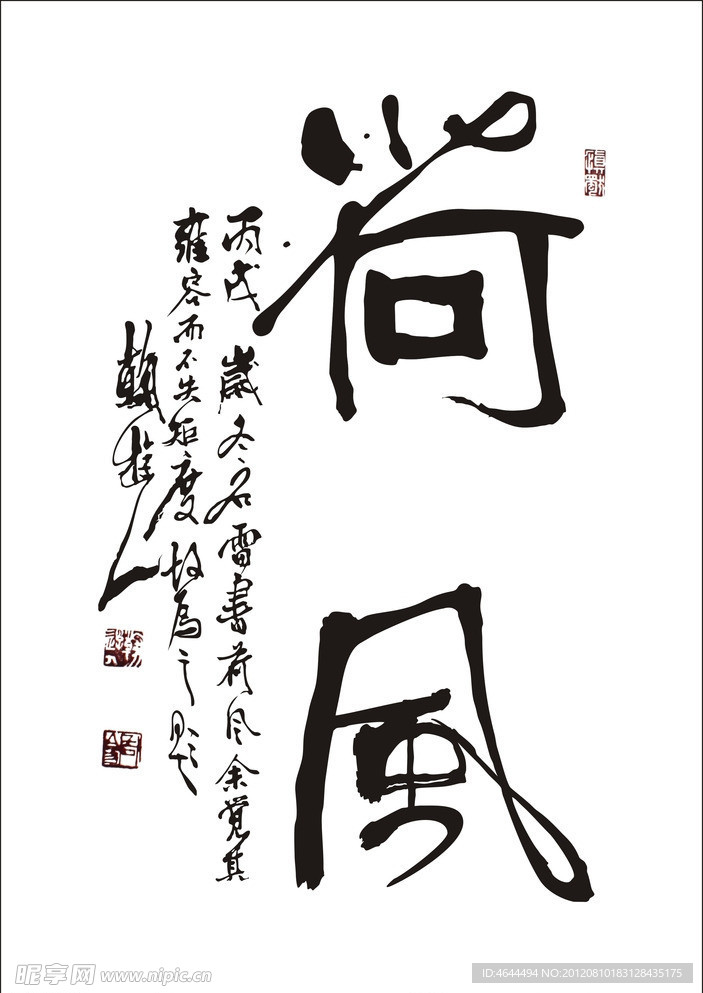 荷風
丙戌歲冬名雷書荷风余覺其
雍容而不失矩度故為之题
昵享网 www.nipic.cn
ID:4644494 NO:20120810183128435175